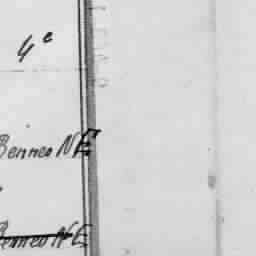 4e
Bennes NE
Bennes NE